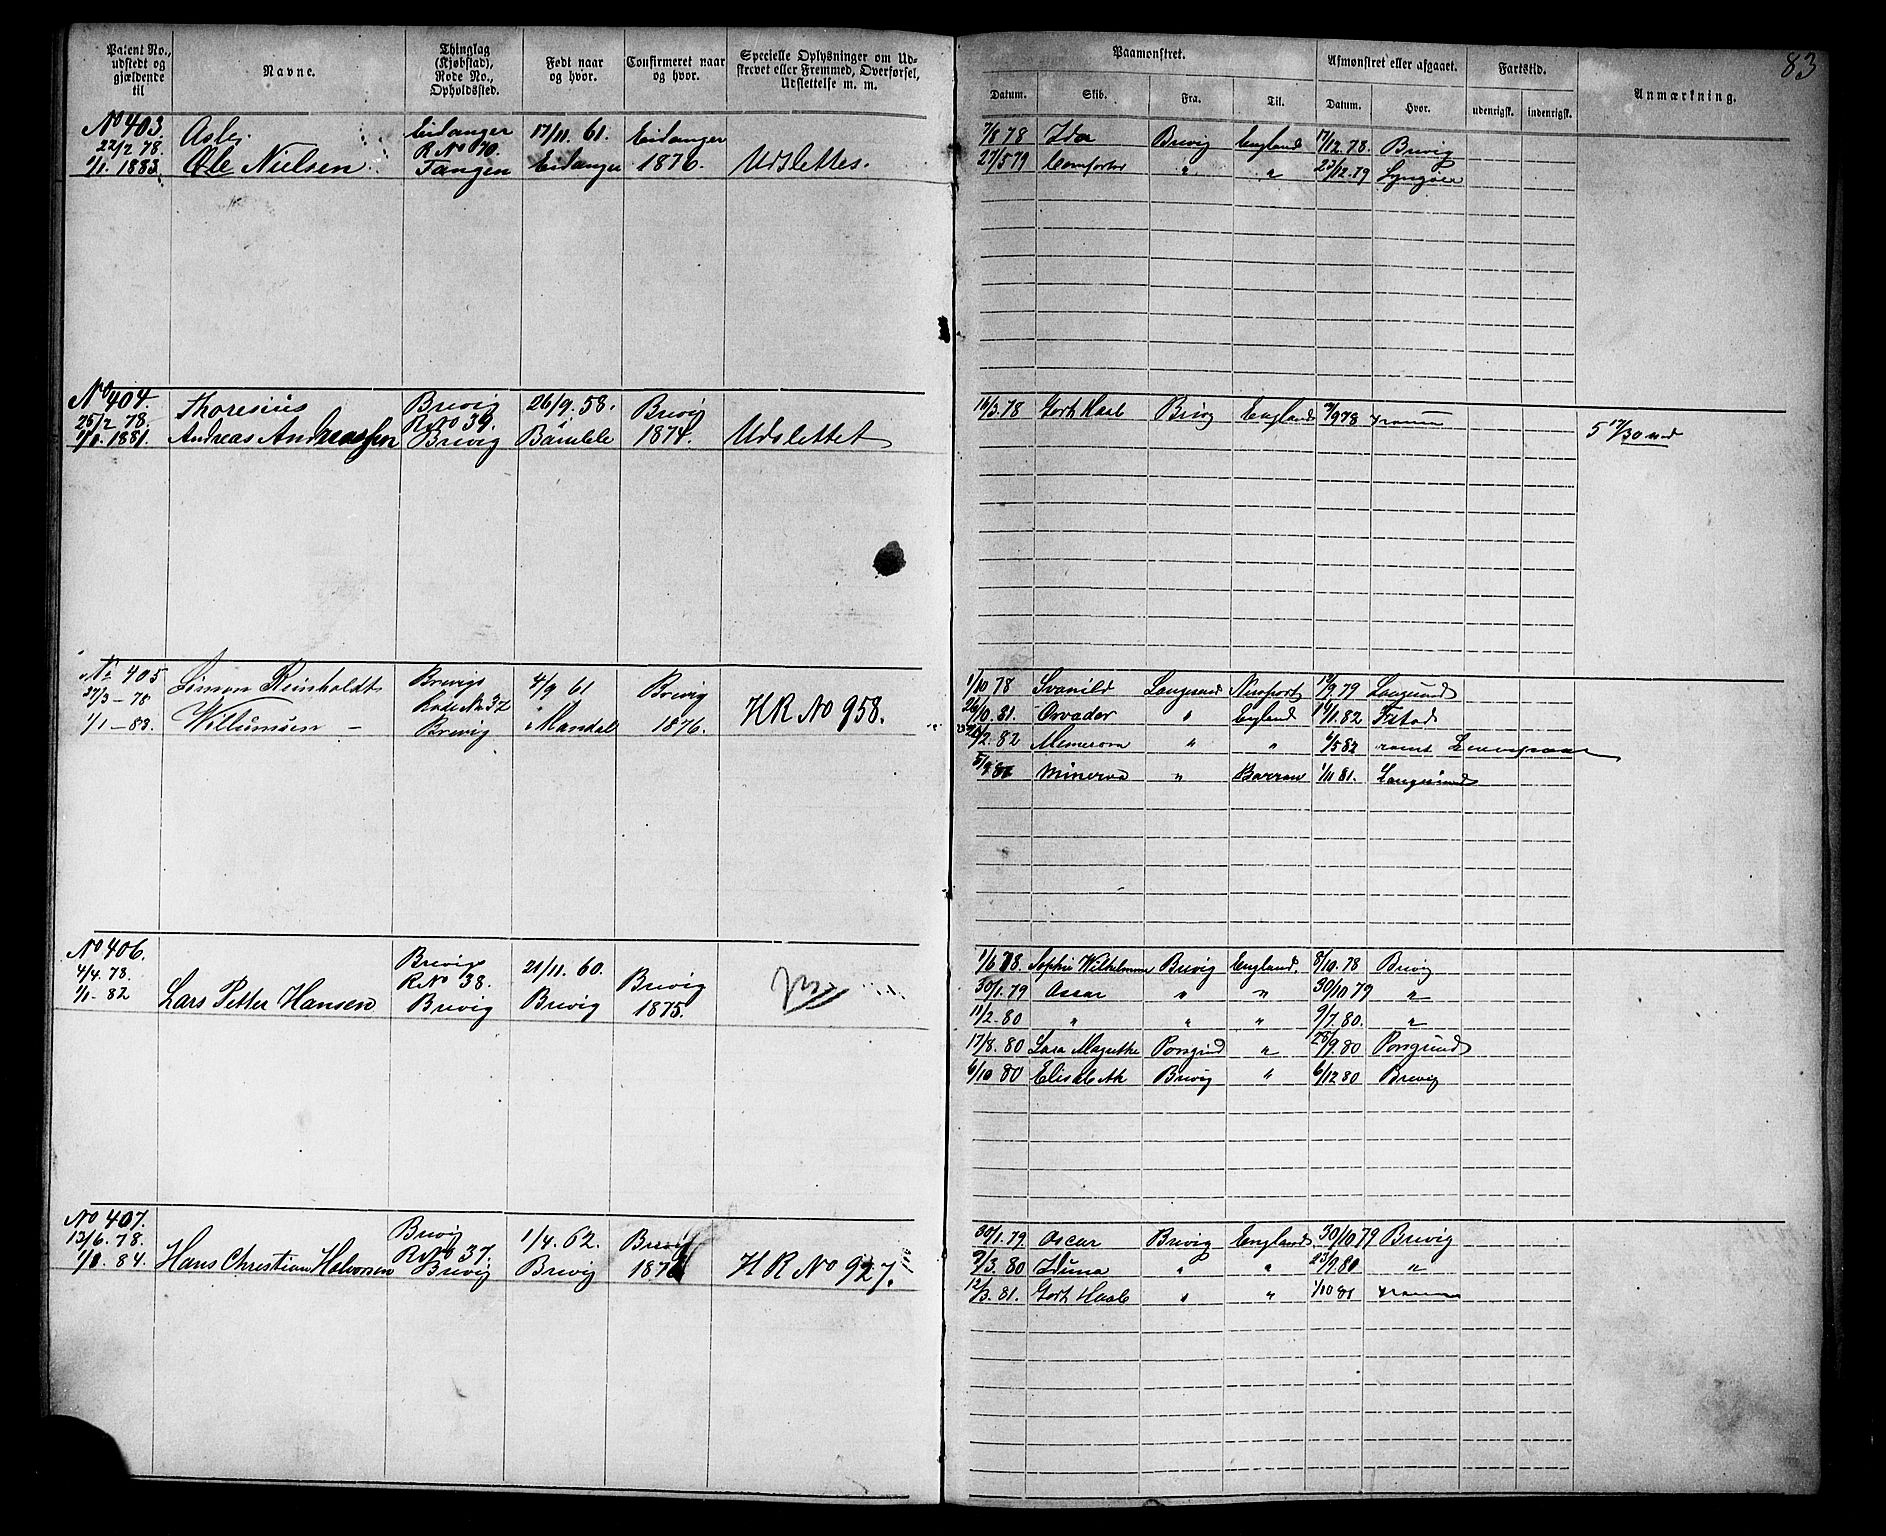 83
Patent No., udstedt og gjældende til
Navne.
Thinglag (Kjøbstad), Rode No., Opholdssted.
Født naar og hvor.
Confirmeret naar og hvor.
Specielle Oplysninger om Udskrevet eller Fremmed, Overførsel, Udslettelse m. m.
Paamønstret.
Afmønstret eller afgaaet.
Fartstid.
Anmærkning.
Datum. Skib. Fra. Til. Datum. Hvor. udenrigsk. indenrigsk.
No 403. Eidanger 17/11. 61. Eidanger
22/2 78. R No 70.
1/1. 1883. Ole Nielsen Tangen Eidanger 1876. Udslettes.
7/8 78 Ida Brevig England 17/12. 78. Brevig
27/5 79 Comforter " " 23/12. 79 Lyngøer
No 404. Thoresius Brevig 26/9. 58. Brevig
25/2 78. R No 39.
1/1. 1881. Andreas Andreassen Brevig Bamble 1874. Udslettet
16/3. 78 Godt Haab Brevig England /9 78
5 17/30 md
No 405 Simon Reinholdt Brevigs 4/9 61 Brevig
27/3 - 78 Rode No 32
1/1 - 83. Willumsen - Brevig Mandal 1876. HR No 958.
1/10 78 Svanild Langesund Newport /9 79 Langesund
26/10. 81. Orvader " England /1. 82
/2. 82 " " 6/5 82
5/9 81 Minerva " 1/11 81. Langesund
No 406. Brevig 21/11. 60. Brevig
4/4. 78. R No 38.
1/1 - 82 Lars Petter Hansen Brevig Brevig 1875.
1/6 78. Sophie Wilhelmine Brevig England. 8/10. 78 Brevig
30/1. 79 Oscar " " 30/10 79 "
11/2 - 80 " " " 9/7. 80. "
17/8. 80 Porsgrund " 28/9. 80 Porsgrund
6/10 80 Elisabeth Brevig " 6/12 80 Brevig
No 407. Brevig 1/4. 62. Brevig
13/6. 78. R No 37.
1/1. 84. Hans Christian Halvorsen Brevig Brevig 1876 HR No 927.
30/1. 79 Oscar Brevig England 30/10 79 Brevig
9/3. 80 Iduna " " 23/9. 80 "
12/3. 81. Godt Haab " " 1/10 81